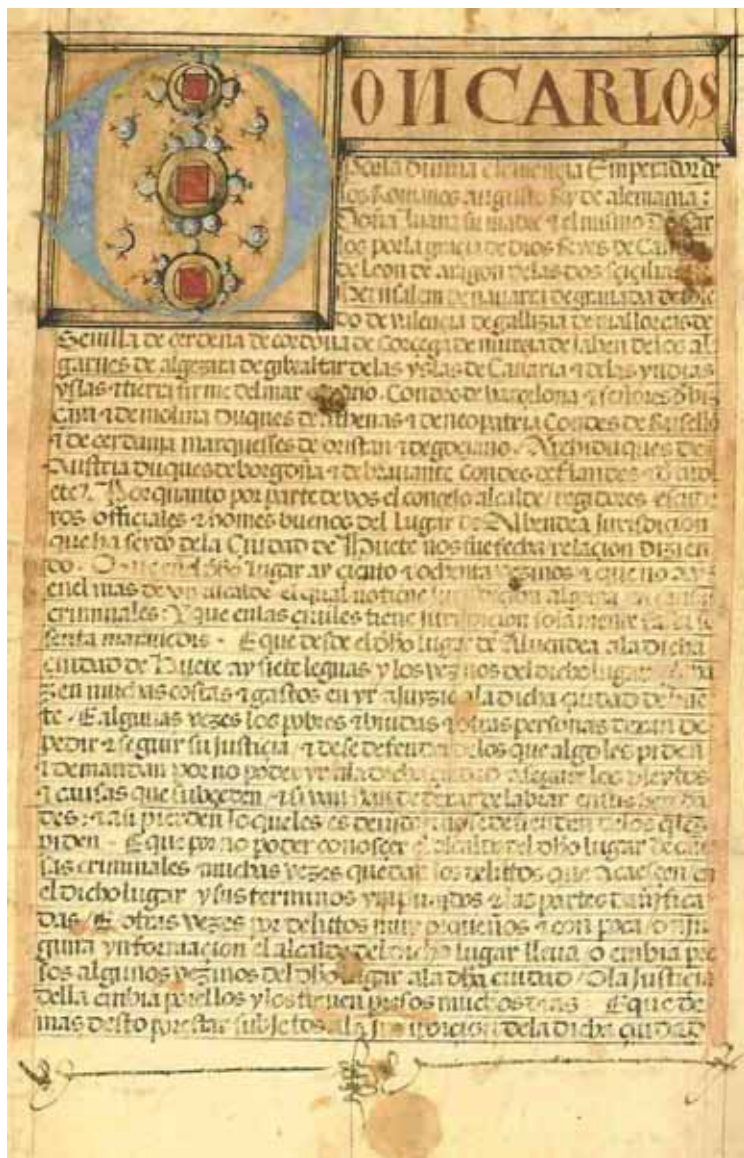 DON CARLOS
Por la divina clemencia Emperador de
los Romanos augusto Rey de alemania :
Doña Juana su madre y el mismo Don Car
los por la gracia de dios Reyes de Castilla
de Leon de aragon de las dos seçilias
de Jerusalem de navarra de granada de tole
do de valencia de gallizia de mallorcas de
Sevilla de cerdeña de cordova de corcega de murcia de Jahen de los al
garves de algezira de gibraltar de las yslas de Canaria y de las yndias
yslas y tierra firme del mar oceano. Condes de barcelona y señores de biz
caya y de molina Duques de athenas y de neopatria Condes de Rusello
y de cerdania marquesses de oristan y de goçiano. Archiduques de
Austria duques de borgoña y de bravante Condes de flandes y de tirol
etc?. Por quanto por parte de vos el concejo alcalde / regidores escude
ros officiales y homes buenos del lugar de Albendea Jurisdiçion
que ha seydo dela Ciudad de Huete nos fue fecha relaçion dizien
do. Que enel dho lugar ay ciento y ochenta vezinos y que no ay
enel mas de un alcalde el qual no tiene jurisdiçion alguna en causas
criminales : Y que enlas civiles tiene jurisdiçion solamente fasta se
senta maravedis . E que desde el dho lugar de Alvendea ala dicha
ciudad de Huete ay siete leguas y los vezinos del dicho lugar
zen muchas costas y gastos en yr a juyzio ala dicha çiudad de hue
te. E algunas vezes los pobres y biudas y otras personas dexan de
pedir y seguir su justicia / y de se defender delos que algo les piden
y demandan por no poder yr ala dicha çiudad a seguir los pleytos
y causas que subçeden / y si van han de dexar de labrar en sus hereda
des : y asi pierden lo que les es devido y no se defienden delos que les
piden . E que por no poder conosçer el alcalde del dho lugar de cau
sas criminales muchas vezes quedan los delittos que acaesçen en
el dicho lugar y sus terminos ynpunidos y las partes danifica
das / E otras vezes por delittos muy pequeños y con poca / o nin
guna ynformaçion el alcalde del dicho lugar lleva o embia pre
sos algunos vezinos del dho lugar ala dha ciudad / O la Justicia
della embia por ellos y los tienen presos muchos dias . E que de
mas desto por estar subjetos ala jurisdiçion dela dicha çiudad